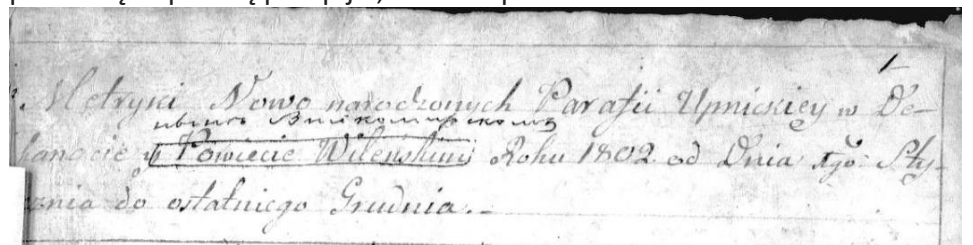 1
Metryki Nowo narodzonych Parafii Upnickiey w De-
Вилкомирскомъ
kanacie y Powiecie Wilenskim Roku 1802. od Dnia 1go Sty-
cznia do ostatniego Grudnia.-